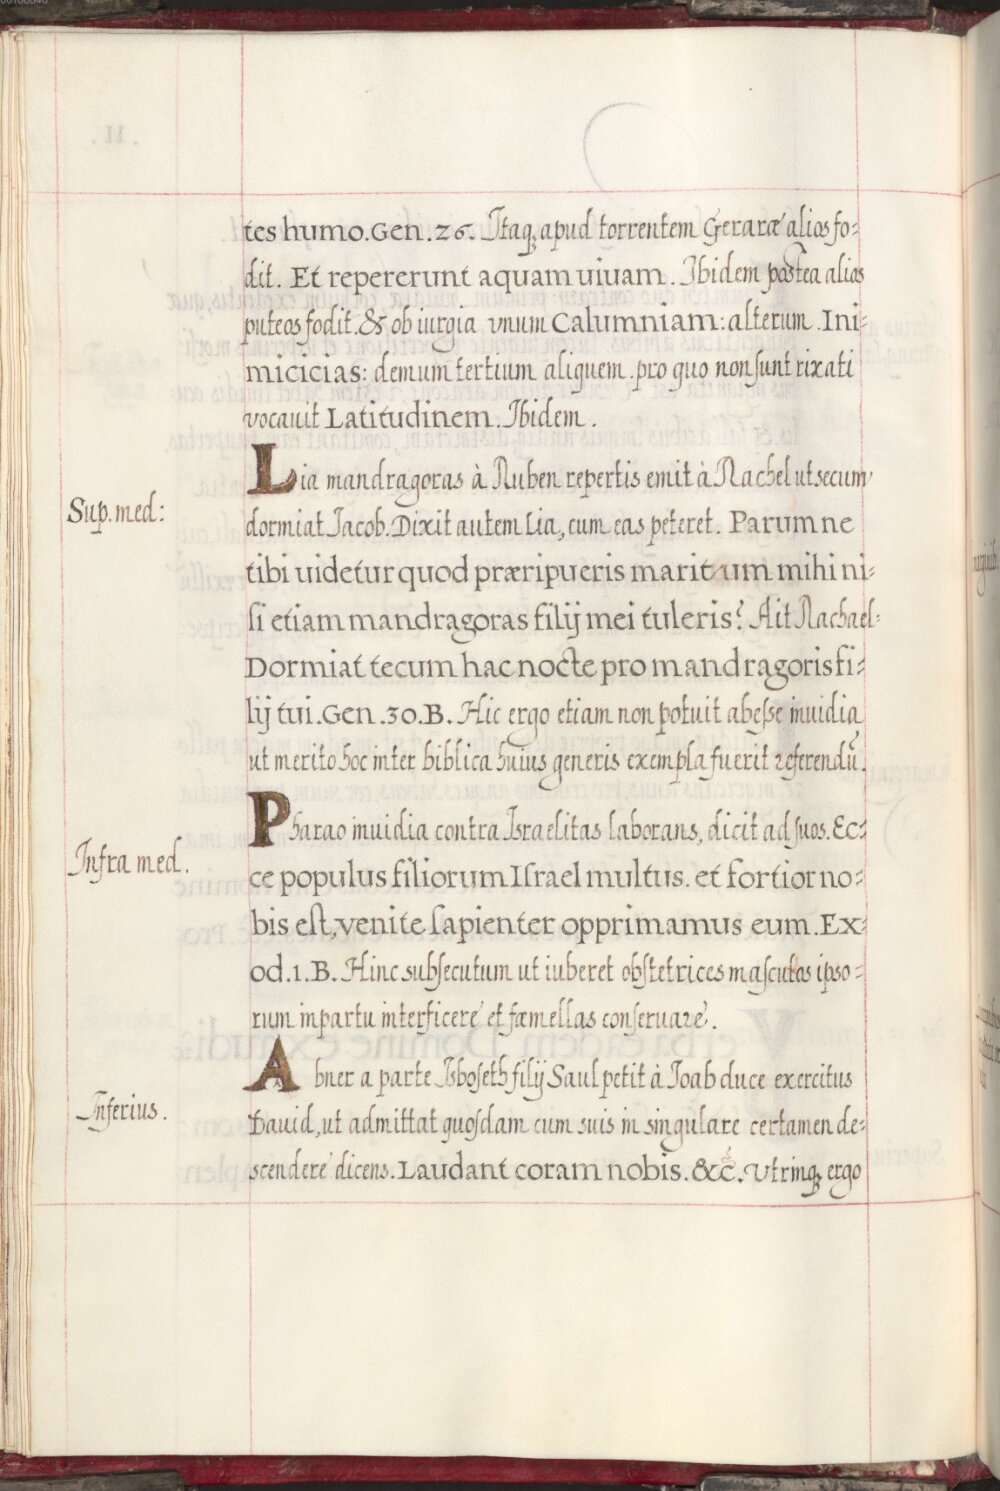 tes humo. Gen. 26. Itaq; apud torrentem Geraræ alios fo-
dit. Et repererunt aquam uiuam. Ibidem postea alios
puteos fodit. & ob iurgia vnum Calumniam: alterum. Ini-
micicias: demum tertium aliquem. pro quo non sunt rixati
vocauit Latitudinem. Ibidem.
Lia mandragoras à Ruben repertis emit à Rachel ut secum
Sup. med:
dormiat Jacob. Dixit autem Lia, cum eas peteret. Parum ne
tibi uidetur quod præripueris maritum mihi ni-
si etiam mandragoras filij mei tuleris? Ait Rachael-
Dormiat tecum hac nocte pro mandragoris fi-
lij tui. Gen. 30. B. Hic ergo etiam non potuit abesse inuidia
ut merito hoc inter biblica huius generis exempla fuerit referendũ.
Pharao inuidia contra Israelitas laborans, dicit ad suos. Ec-
Infra med.
ce populus filiorum Israel multus. et fortior no-
bis est, venite sapienter opprimamus eum. Ex-
od. 1. B. Hinc subsecutum ut iuberet obstetrices masculos ipso-
rum in partu interficere et fæmellas conseruare.
Abner a parte Isboseth filij Saul petit à Joab duce exercitus
Inferius.
Dauid, ut admittat quosdam cum suis in singulare certamen de-
scendere dicens. Laudant coram nobis. &c. Vtrinq; ergo